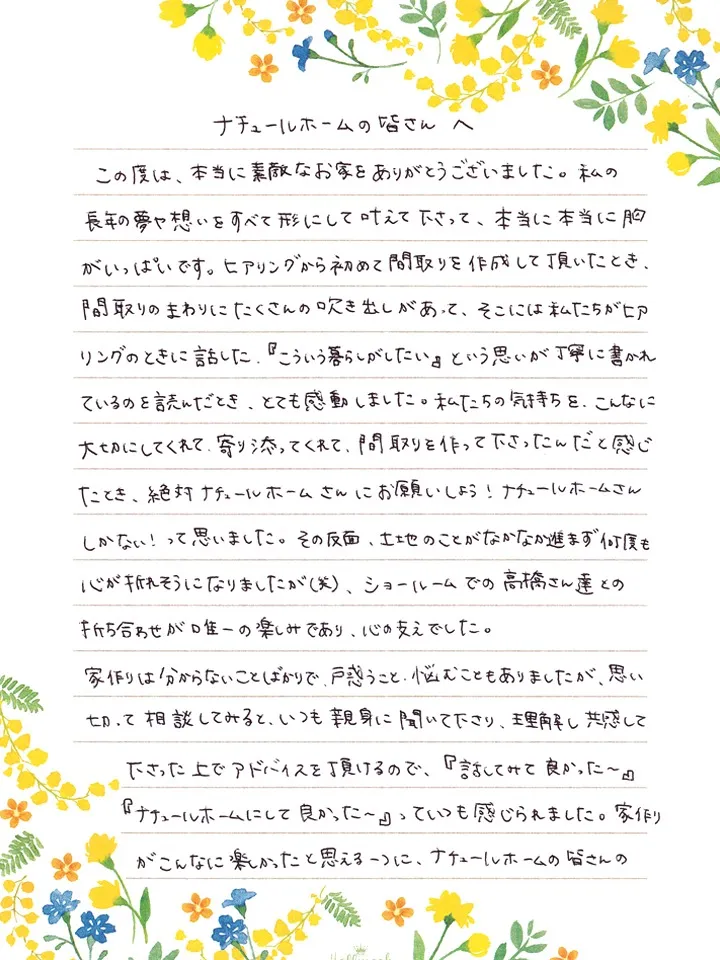 ナチュールホームの皆さん へ
この度は、本当に素敵なお家をありがとうございました。私の
長年の夢や想いをすべて形にして叶えて下さって、本当に本当に胸
がいっぱいです。ヒアリングから初めて間取りを作成して頂いたとき、
間取りのまわりにたくさんの吹き出しがあって、そこには私たちがヒア
リングのときに話した、『こういう暮らしがしたい』という思いが丁寧に書かれ
ているのを読んだとき、とても感動しました。私たちの気持ちを、こんなに
大切にしてくれて、寄り添ってくれて、間取りを作って下さったんだと感じ
たとき、絶対ナチュールホームさんにお願いしよう!ナチュールホームさん
しかない!って思いました。その反面、土地のことがなかなか進まず何度も
心が折れそうになりましたが(笑)、ショールームでの高橋さん達との
折ち合わせが唯一の楽しみであり、心の支えでした。
家作りは分からないことばかりで、戸惑うこと、悩むこともありましたが、思い
切って相談してみると、いつも親身に聞いて下さり、理解し共感して
下さった上でアドバイスを頂けるので、『話してみて良かった〜』
『ナチュールホームにして良かった〜』っていつも感じられました。家作り
がこんなに楽しかったと思える一つに、ナチュールホームの皆さんの
Hallmark